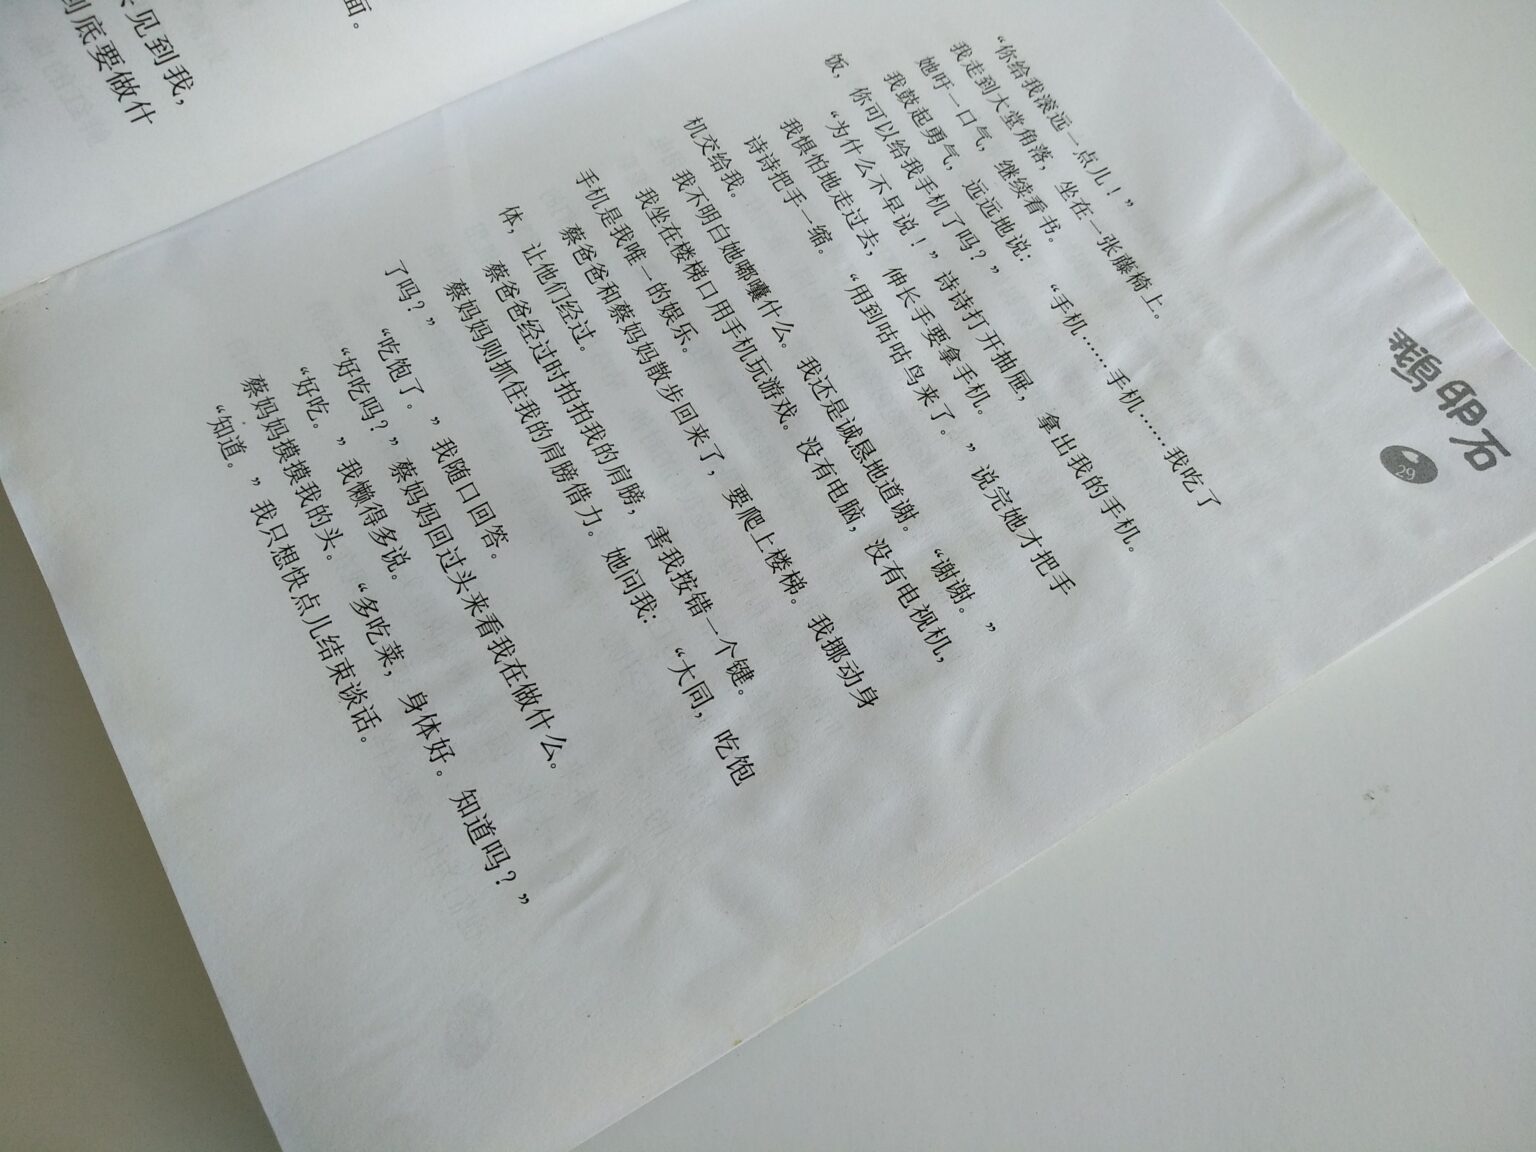 面。
见到我，
到底要做什
鹅卵石
29
“你给我滚远一点儿！”
我走到大堂角落，坐在一张藤椅上。
她吁一口气，继续看书。
我鼓起勇气，远远地说：“手机……手机……我吃了
饭，你可以给我手机了吗？”
“为什么不早说！”诗诗打开抽屉，拿出我的手机。
我惧怕地走过去，伸长手要拿手机。
诗诗把手一缩。“用到咕咕鸟来了。”说完她才把手
机交给我。
我不明白她嘟囔什么。我还是诚恳地道谢。“谢谢。”
我坐在楼梯口用手机玩游戏。没有电脑，没有电视机，
手机是我唯一的娱乐。
蔡爸爸和蔡妈妈散步回来了，要爬上楼梯。我挪动身
体，让他们经过。
蔡爸爸经过时拍拍我的肩膀，害我按错一个键。
蔡妈妈则抓住我的肩膀借力。她问我：“大同，吃饱
了吗？”
“吃饱了。”我随口回答。
“好吃吗？”蔡妈妈回过头来看我在做什么。
“好吃。”我懒得多说。
蔡妈妈摸摸我的头。“多吃菜，身体好。知道吗？”
“知道。”我只想快点儿结束谈话。